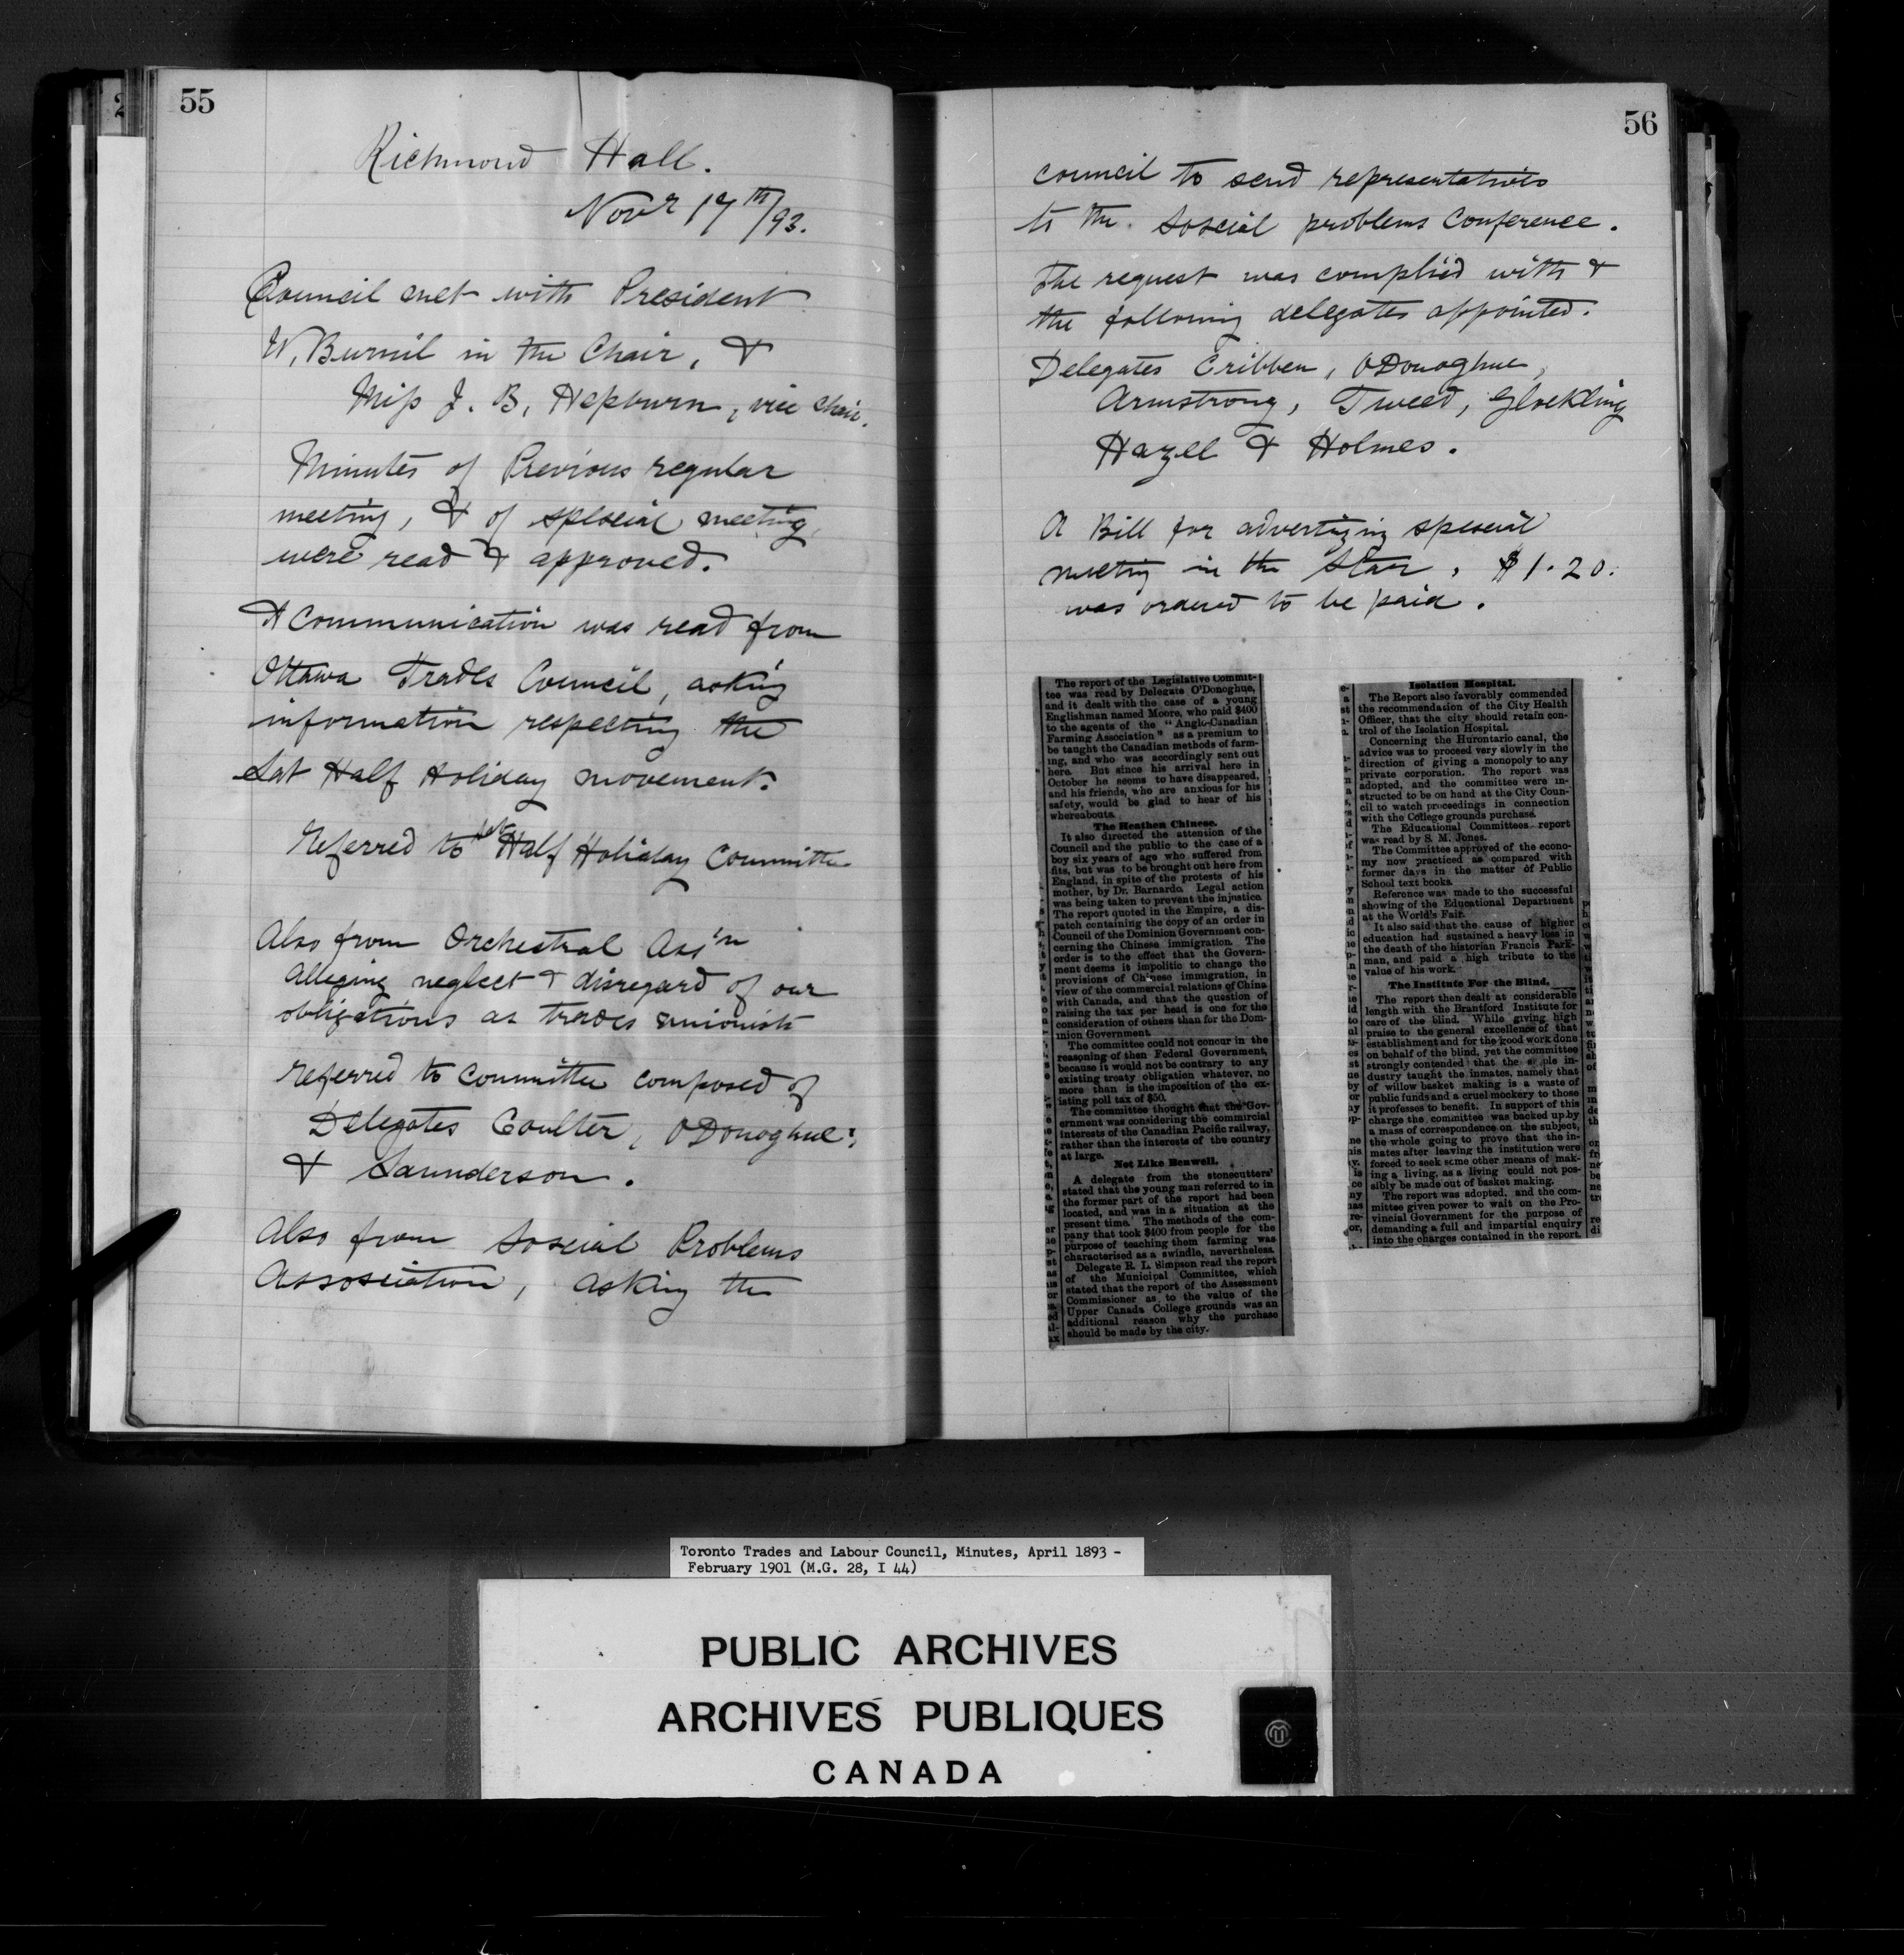 55
Richmond Hall.
Novr 17th/93.
Council met with President
W. Burnil in the Chair, &
Miss J. B. Hepburn, vice chair.
Minutes of Previous regular
meeting, & of speseial meeting,
were read & approved.
A Communication was read from
Ottawa Trades Council, asking
information respecting the
Sat Half Holiday movement.
Referred to Sat Half Holiday Committee
Also from Orchestral Ass'n
alleging neglect & disregard of our
obligations as trades unionists
referred to committee composed of
Delegates Coulter, ODonoghue,
& Saunderson.
Also from Soscial Problems
Assosciation, asking the
56
council to send representatives
to the Soscial problems Conference.
The request was complied with &
the following delegates appointed.
Delegates Cribben, ODonoghue,
Armstrong, Tweed, Glockling
Hazell & Holmes.
A Bill for advertizing speseial
meeting in the Star, $1.20.
was ordered to be paid.
The report of the Legislative Commit-
tee was read by Delegate O'Donoghue,
and it dealt with the case of a young
Englishman named Moore, who paid $400
to the agents of the "Anglo-Canadian
Farming Association" as a premium to
be taught the Canadian methods of farm-
ing, and who was accordingly sent out
here. But since his arrival here in
October he seems to have disappeared,
and his friends, who are anxious for his
safety, would be glad to hear of his
whereabouts.
The Heathen Chinese.
It also directed the attention of the
Council and the public to the case of a
boy six years of age who suffered from
fits, but was to be brought out here from
England, in spite of the protests of his
mother, by Dr. Barnardo. Legal action
was being taken to prevent the injustice.
The report quoted in the Empire, a dis-
patch containing the copy of an order in
Council of the Dominion Government con-
cerning the Chinese immigration. The
order is to the effect that the Govern-
ment deems it impolitic to change the
provisions of Chinese immigration, in
view of the commercial relations of China
with Canada, and that the question of
raising the tax per head is one for the
consideration of others than for the Dom-
inion Government.
The committee could not concur in the
reasoning of then Federal Government,
because it would not be contrary to any
existing treaty obligation whatever, no
more than is the imposition of the ex-
isting poll tax of $50.
The committee thought that the Gov-
ernment was considering the commercial
interests of the Canadian Pacific railway,
rather than the interests of the country
at large.
Not Like Benwell.
A delegate from the stonecutters'
stated that the young man referred to in
the former part of the report had been
located, and was in a situation at the
present time. The methods of the com-
pany that took $400 from people for the
purpose of teaching them farming was
characterised as a swindle, nevertheless.
Delegate R. L. Simpson read the report
of the Municipal Committee, which
stated that the report of the Assessment
Commissioner as to the value of the
Upper Canada College grounds was an
additional reason why the purchase
should be made by the city.
Isolation Hospital.
The Report also favorably commended
the recommendation of the City Health
Officer, that the city should retain con-
trol of the Isolation Hospital.
Concerning the Hurontario canal, the
advice was to proceed very slowly in the
direction of giving a monopoly to any
private corporation. The report was
adopted, and the committee were in-
structed to be on hand at the City Coun-
cil to watch proceedings in connection
with the College grounds purchase.
The Educational Committees report
was read by S. M. Jones.
The Committee approved of the econo-
my now practiced as compared with
former days in the matter of Public
School text books.
Reference was made to the successful
showing of the Educational Department
at the World's Fair.
It also said that the cause of higher
education had sustained a heavy loss in
the death of the historian Francis Park-
man, and paid a high tribute to the
value of his work.
The Institute For the Blind.
The report then dealt at considerable
length with the Brantford Institute for
care of the blind. While giving high
praise to the general excellence of that
establishment and for the good work done
on behalf of the blind, yet the committee
strongly contended that the in-
dustry taught the inmates, namely that
of willow basket making is a waste of
public funds and a cruel mockery to those
it professes to benefit. In support of this
charge the committee was backed up by
a mass of correspondence on the subject,
the whole going to prove that the in-
mates after leaving the institution were
forced to seek some other means of mak-
ing a living, as a living could not pos-
sibly be made out of basket making.
The report was adopted, and the com-
mittee given power to wait on the Pro-
vincial Government for the purpose of
demanding a full and impartial enquiry
into the charges contained in the report.
Toronto Trades and Labour Council, Minutes, April 1893 -
February 1901 (M.G. 28, I 44)
PUBLIC ARCHIVES
ARCHIVES PUBLIQUES
CANADA